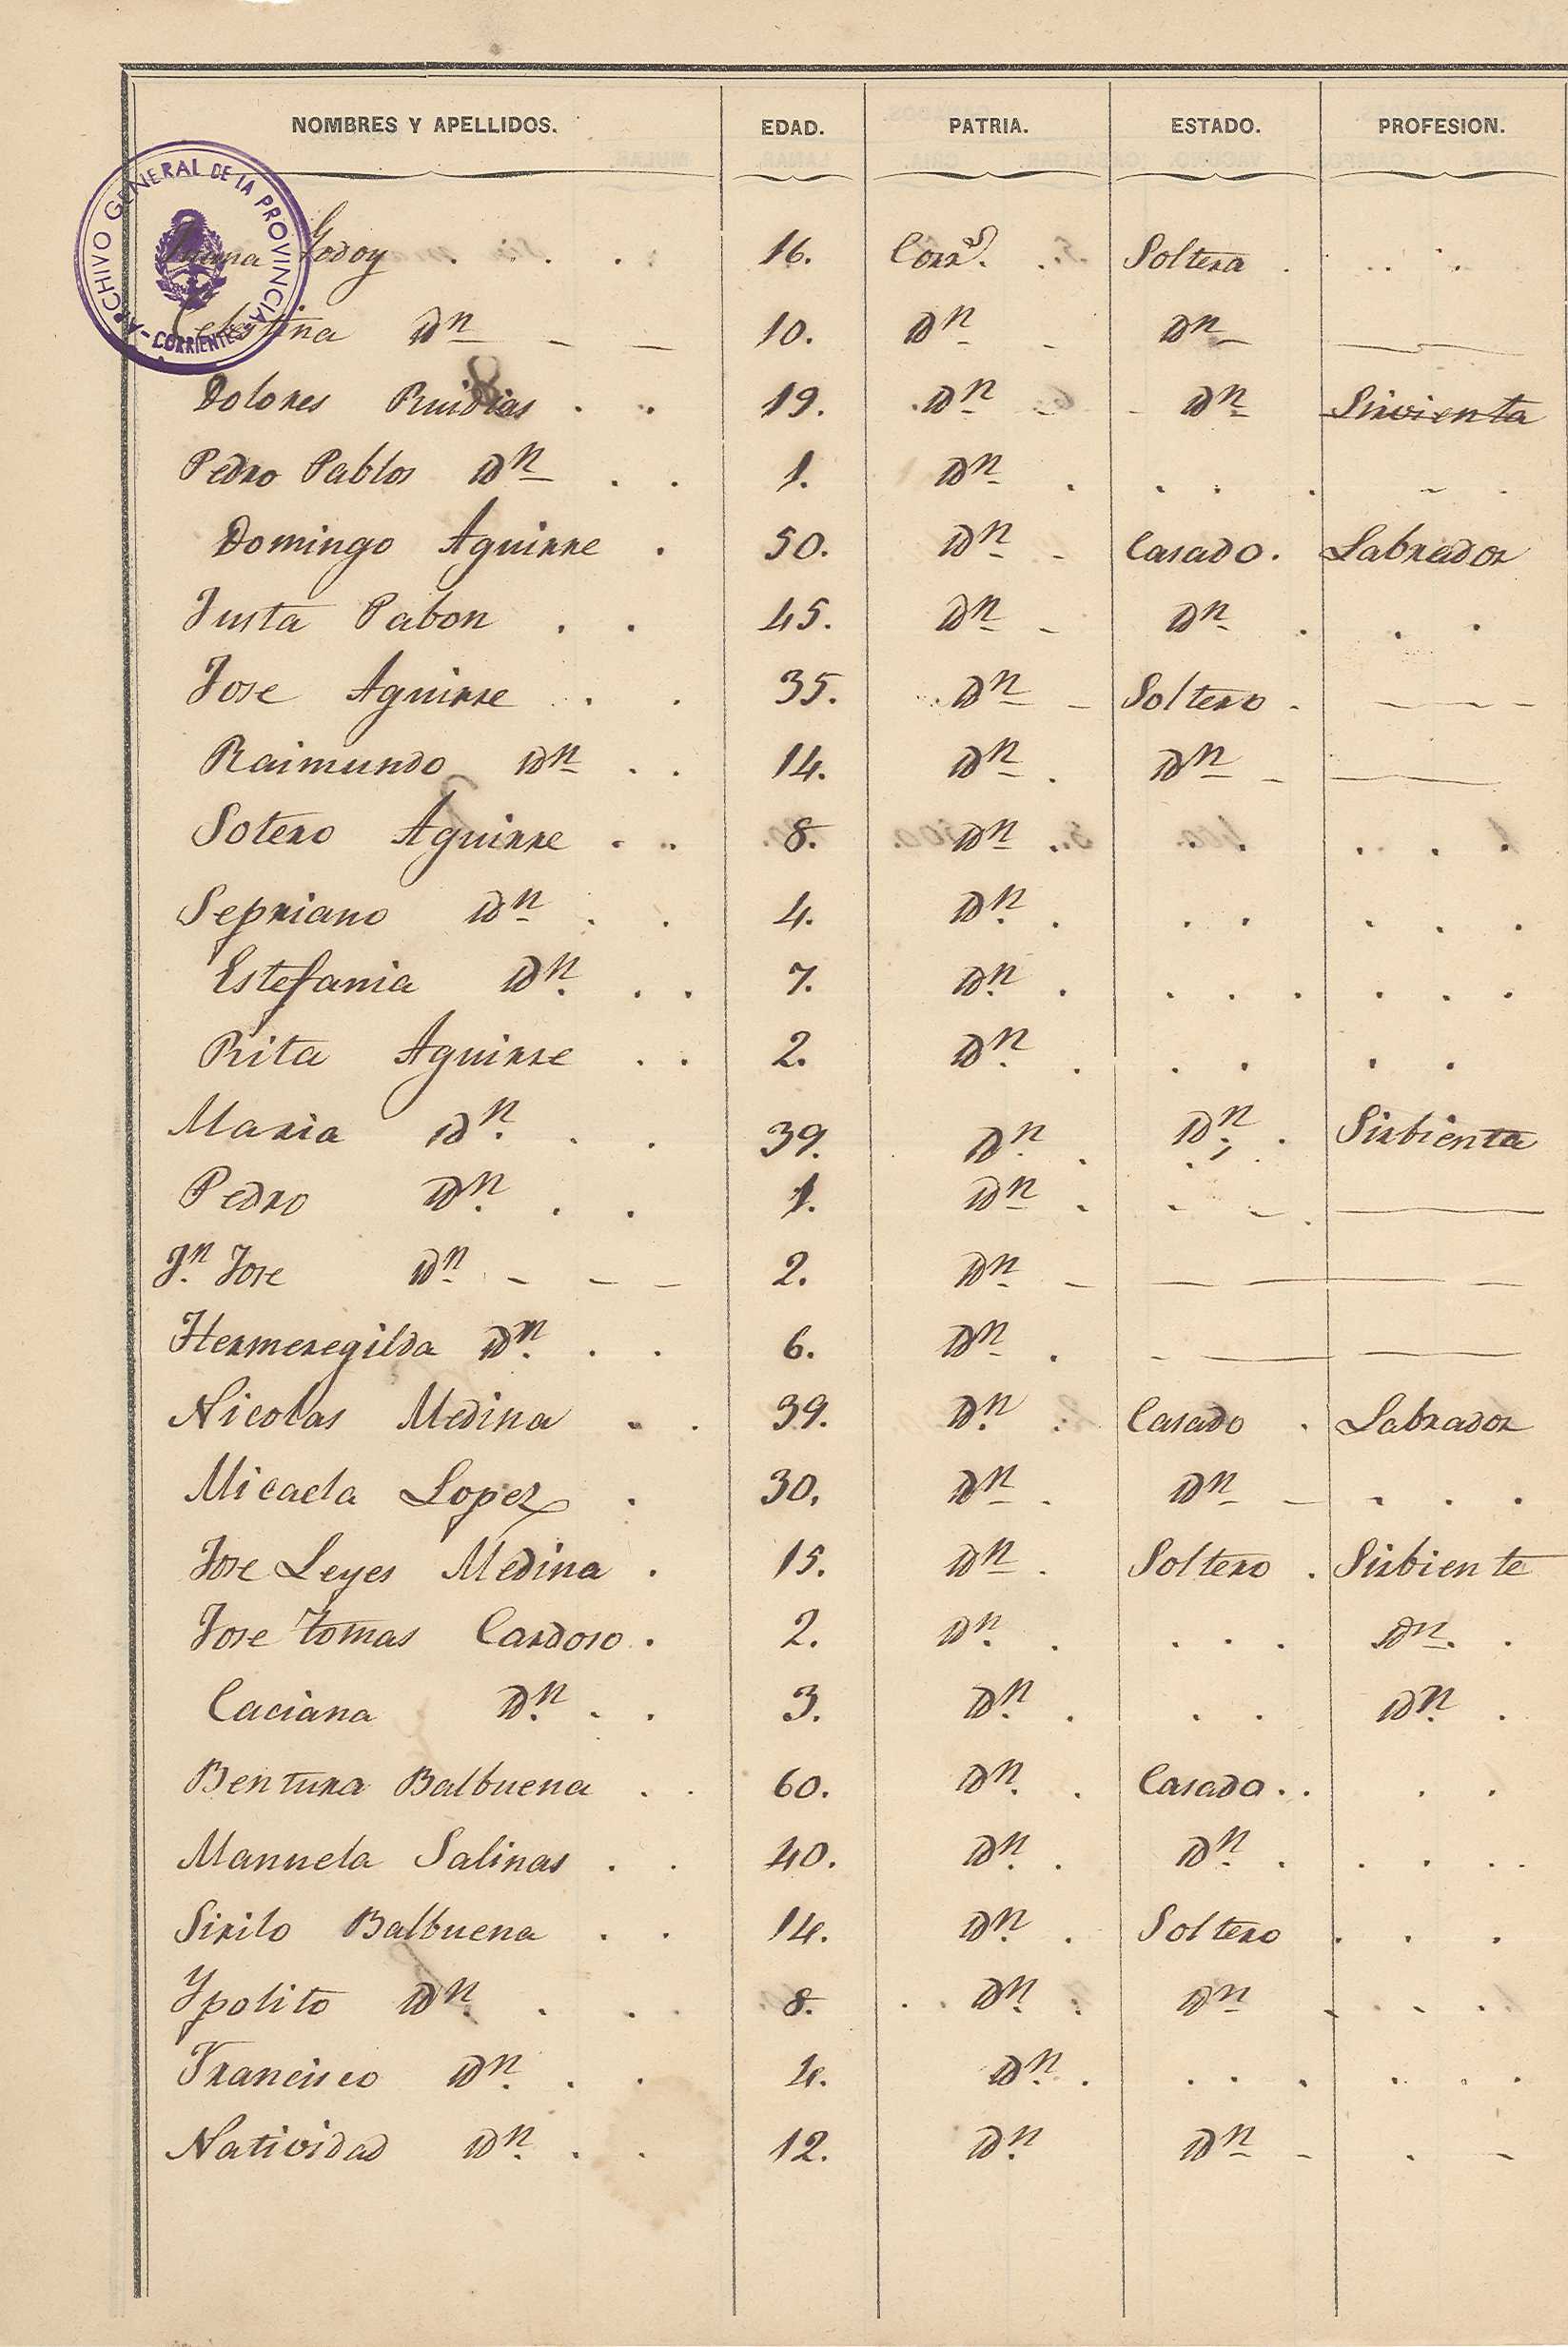 NOMBRES Y APELLIDOS. EDAD. PATRIA. ESTADO. PROFESION.
ARCHIVO GENERAL DE LA PROVINCIA - CORRIENTES -
Godoy 16. Corrs. Soltera
Celestina Dn 10. Dn Dn
Dolores Ruidias 19. Dn Dn Sirvienta
Pedro Pablos Dn 1. Dn
Domingo Aguirre 50. Dn Casado. Labrador
Justa Pabon 45. Dn Dn
Jose Aguirre 35. Dn Soltero
Raimundo Dn 14. Dn Dn
Sotero Aguirre 8. Dn
Sepriano Dn 4. Dn
Estefania Dn 7. Dn
Rita Aguirre 2. Dn
Maria Dn 39. Dn Dn Sirbienta
Pedro Dn 1. Dn
Jn Jose Dn 2. Dn
Hermeregilda Dn 6. Dn
Nicolas Medina 39. Dn Casado Labrador
Micaela Lopez 30. Dn Dn
Jose Leyes Medina 15. Dn Soltero Sirbiente
Jose Tomas Cardoso 2. Dn Dn
Caciana Dn 3. Dn Dn
Bentura Balbuena 60. Dn Casado
Manuela Salinas 40. Dn Dn
Sirilo Balbuena 14. Dn Soltero
Ypolito Dn 8. Dn Dn
Francisco Dn 4. Dn
Natividad Dn 12. Dn Dn